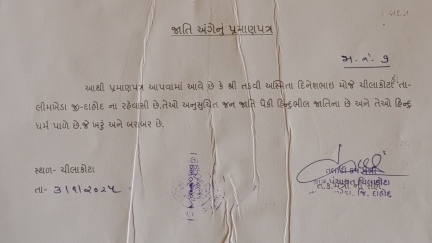 જાતિ અંગેનું પ્રમાણપત્ર
આથી પ્રમાણપત્ર આપવામાં આવે છે કે શ્રી તડવી અસ્મિતા દિનેશભાઇ મોજે ચીલાકોટા તા-
લીમખેડા જી-દાહોદ ના રહેવાસી છે.તેઓ અનુસુચિત જન જાતિ પૈકી હિન્દુભીલ જાતિના છે અને તેઓ હિન્દુ
ધર્મ પાળે છે.જે ખરૂં અને બરાબર છે.
સ્થળ- ચીલાકોટા
તા- 3/9/2024
તલાટી કમ મંત્રી
ગ્રામ પંચાયત ચિલાકોટા
જિ. દાહોદ